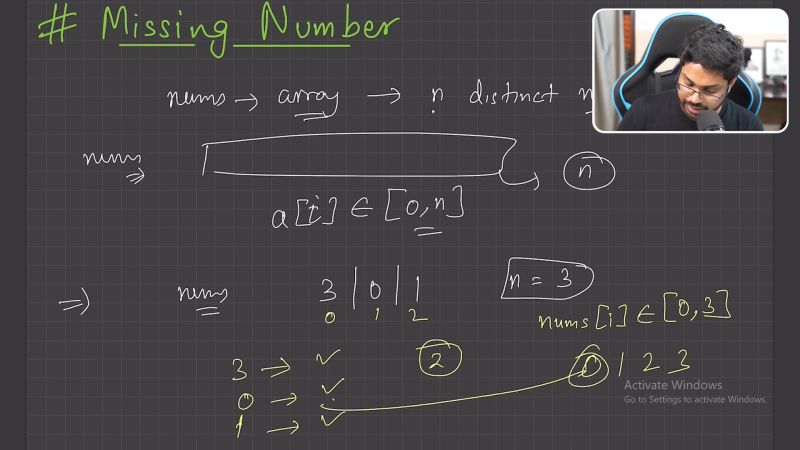 # Missing Number
nums → array → n distinct
nums ⇒ n
a[i] ∈ [0,n]
⇒ nums 3 | 0 | 1 n = 3
0 1 2
nums[i] ∈ [0,3]
3 → ✓ 2 0 1 2 3
0 → ✓
1 → ✓
Activate Windows
Go to Settings to activate Windows.